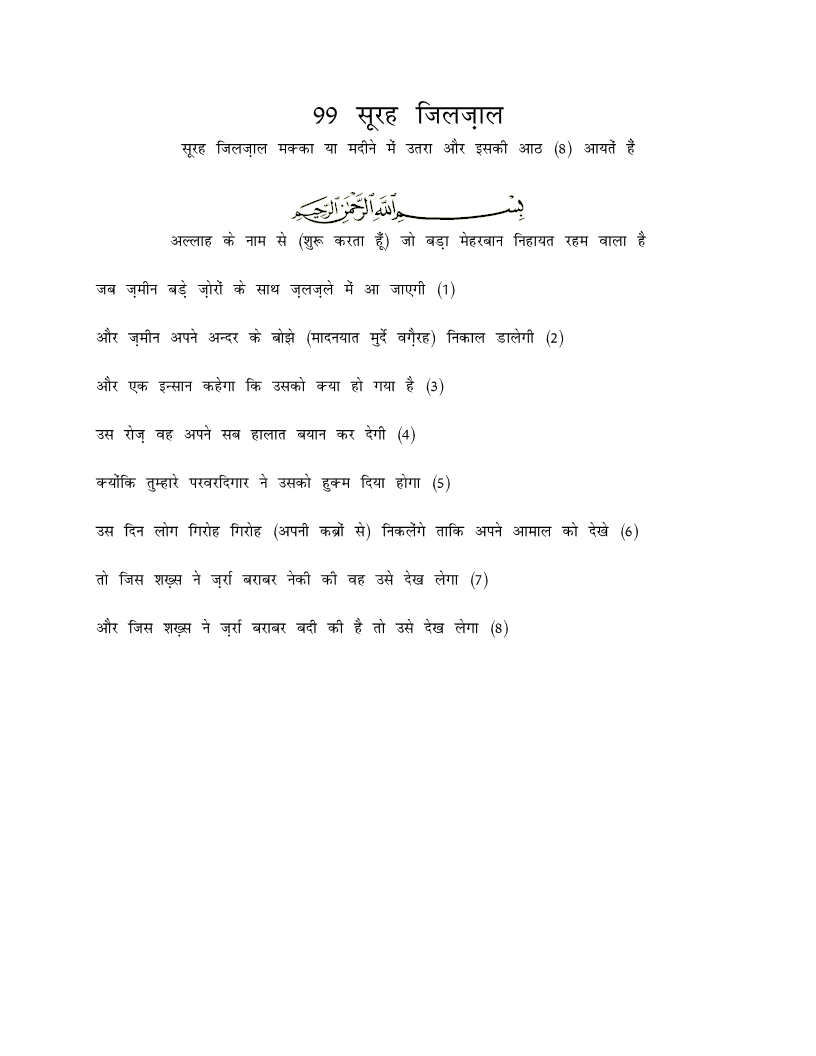 99 सूरह जिलज़ाल
सूरह जिलज़ाल मक्का या मदीने में उतरा और इसकी आठ (8) आयतें हैं
بِسْــــــــمِ ٱللَّهِ ٱلرَّحْمَٰنِ ٱلرَّحِيمِ
अल्लाह के नाम से (शुरू करता हूँ) जो बड़ा मेहरबान निहायत रहम वाला है
जब ज़मीन बड़े ज़ोरों के साथ ज़लज़ले में आ जाएगी (1)
और ज़मीन अपने अन्दर के बोझे (मादनयात मुर्दे वग़ैरह) निकाल डालेगी (2)
और एक इन्सान कहेगा कि उसको क्या हो गया है (3)
उस रोज़ वह अपने सब हालात बयान कर देगी (4)
क्योंकि तुम्हारे परवरदिगार ने उसको हुक्म दिया होगा (5)
उस दिन लोग गिरोह गिरोह (अपनी कब्रों से) निकलेंगे ताकि अपने आमाल को देखे (6)
तो जिस शख़्स ने ज़र्रा बराबर नेकी की वह उसे देख लेगा (7)
और जिस शख़्स ने ज़र्रा बराबर बदी की है तो उसे देख लेगा (8)